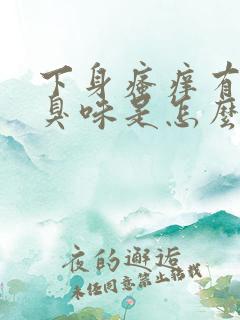 下身瘙痒有
臭味是怎麽
夜的邂逅
未经同意禁止转载